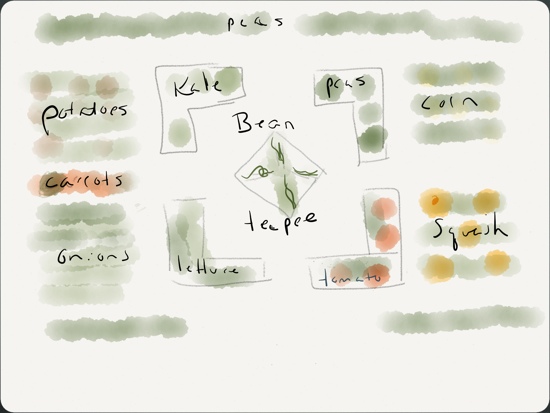 peas
Kale
peas
corn
potatoes
Bean
carrots
teepee
squash
onions
lettuce
tomato